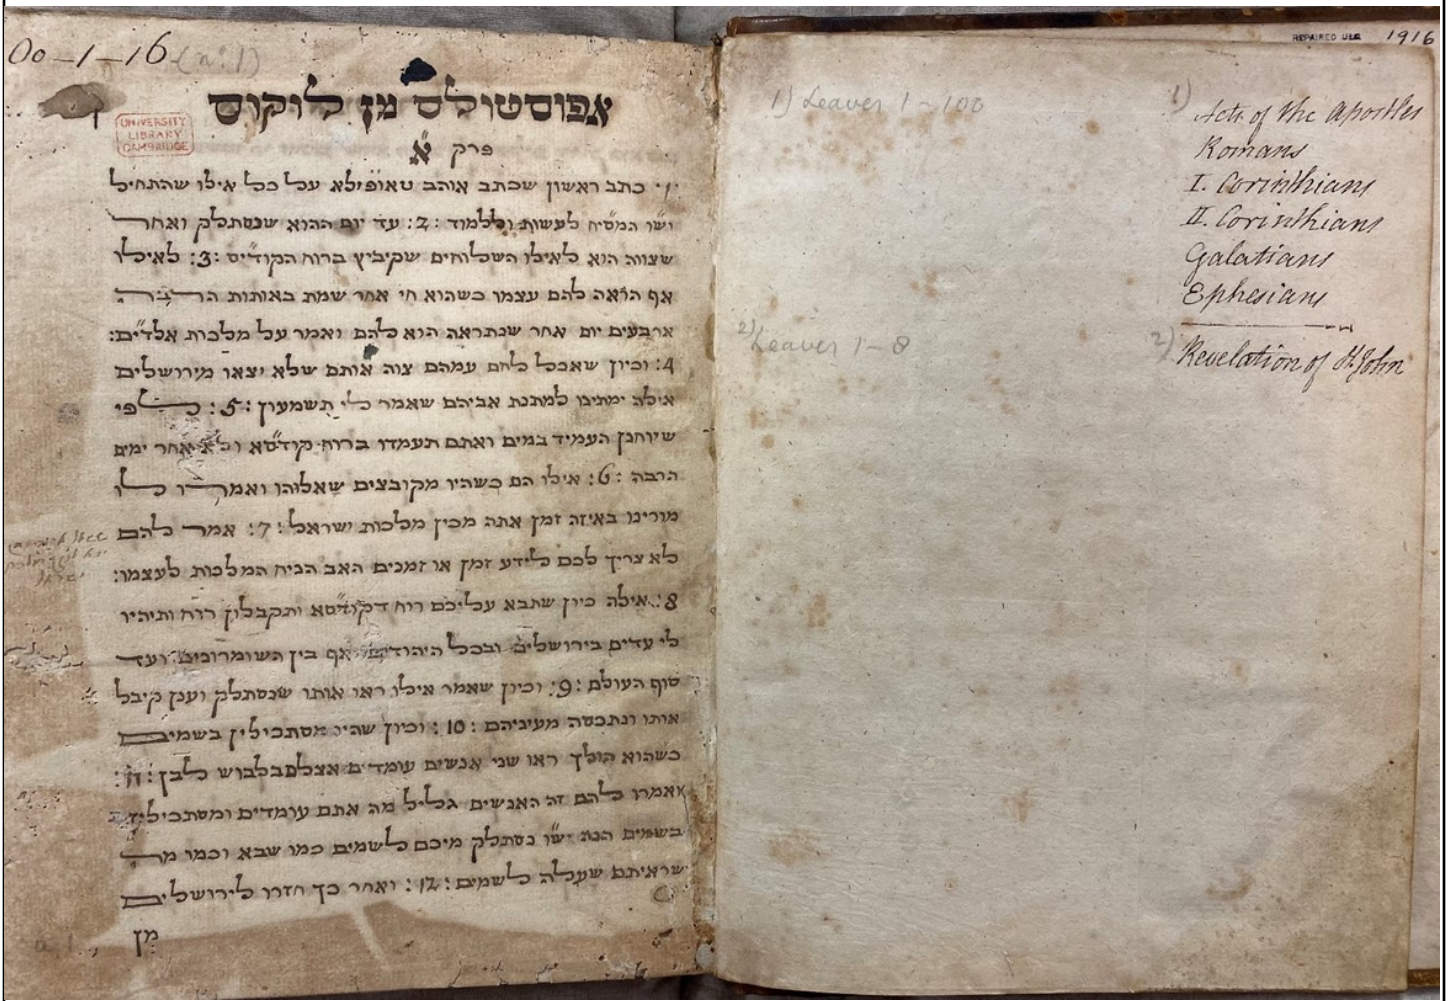 Oo-1-16 (nº. 1)
אפוסטולס מן לוקוס
UNIVERSITY
LIBRARY
CAMBRIDGE
פרק א"
1: כתב ראשון שכתב אוהב טאופילא על כל אילו שהתחיל
וש"ו המס"יח לעשות וללמוד :2: עד יום ההוא שנסתלק ואחר
שצווה הוא לאילו השלוחים שקיביץ ברוח הקוד"ס :3: לאילו
אף הראה להם עצמו כשהוא חי אחר שמת באותות הרבה
ארבעים יום אחר שנתראה הוא להם ואמר על מלכות אלד"ים:
4: וכיון שאכל לחם עמהם צוה אותם שלא יצאו מירושלים
אילה ימתינו למתנת אביהם שאמר לי תשמעון :5: לפי
שיוחנן העמיד במים ואתם תעמדו ברוח קוד"סא ולא אחר ימים
הרבה :6: אילו הם כשהיו מקובצים שאלוהו ואמרו לו
מורינו באיזה זמן אתה מכין מלכות ישראל :7: אמר להם
לא צריך לכם לידע זמן או זמנים האב הניח המלכות לעצמו:
8: אילה כיון שתבא עליכם רוח דקוד"סא ותקבלון רוח ותיהיו
לי עדים בירושלים ובכל היהודים אף בין השומרונים ועד
סוף העולם :9: וכיון שאמר אילו ראו אותו שנסתלק וענן קיבל
אותו ונתכסה מעיניהם :10: וכיון שהיו מסתכילין בשמים
כשהוא הולך ראו שני אנשים עומדים אצלם בלבוש לבן :11:
ואמרו להם זה האנשים גליל מה אתם עומדים ומסתכילין
בשמים הנה יש"ו נסתלק מיכם לשמים כמו שבא וכמו מה
שראיתם שעלה לשמים :12: ואחר כך חזרו לירושלים
מן
REPAIRED ULC 1916
1) Leaves 1-100
1) Acts of the Apostles
Romans
I. Corinthians
II. Corinthians
Galatians
Ephesians
2) Leaves 1-8
2) Revelation of St John